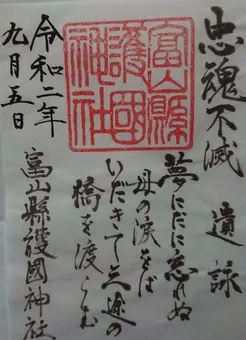 忠魂不滅
遺詠
夢にだに忘れぬ
母の涙をば
いだきて三途の
橋を渡らむ
富山縣護國神社
富山縣護國神社
令和二年
九月五日